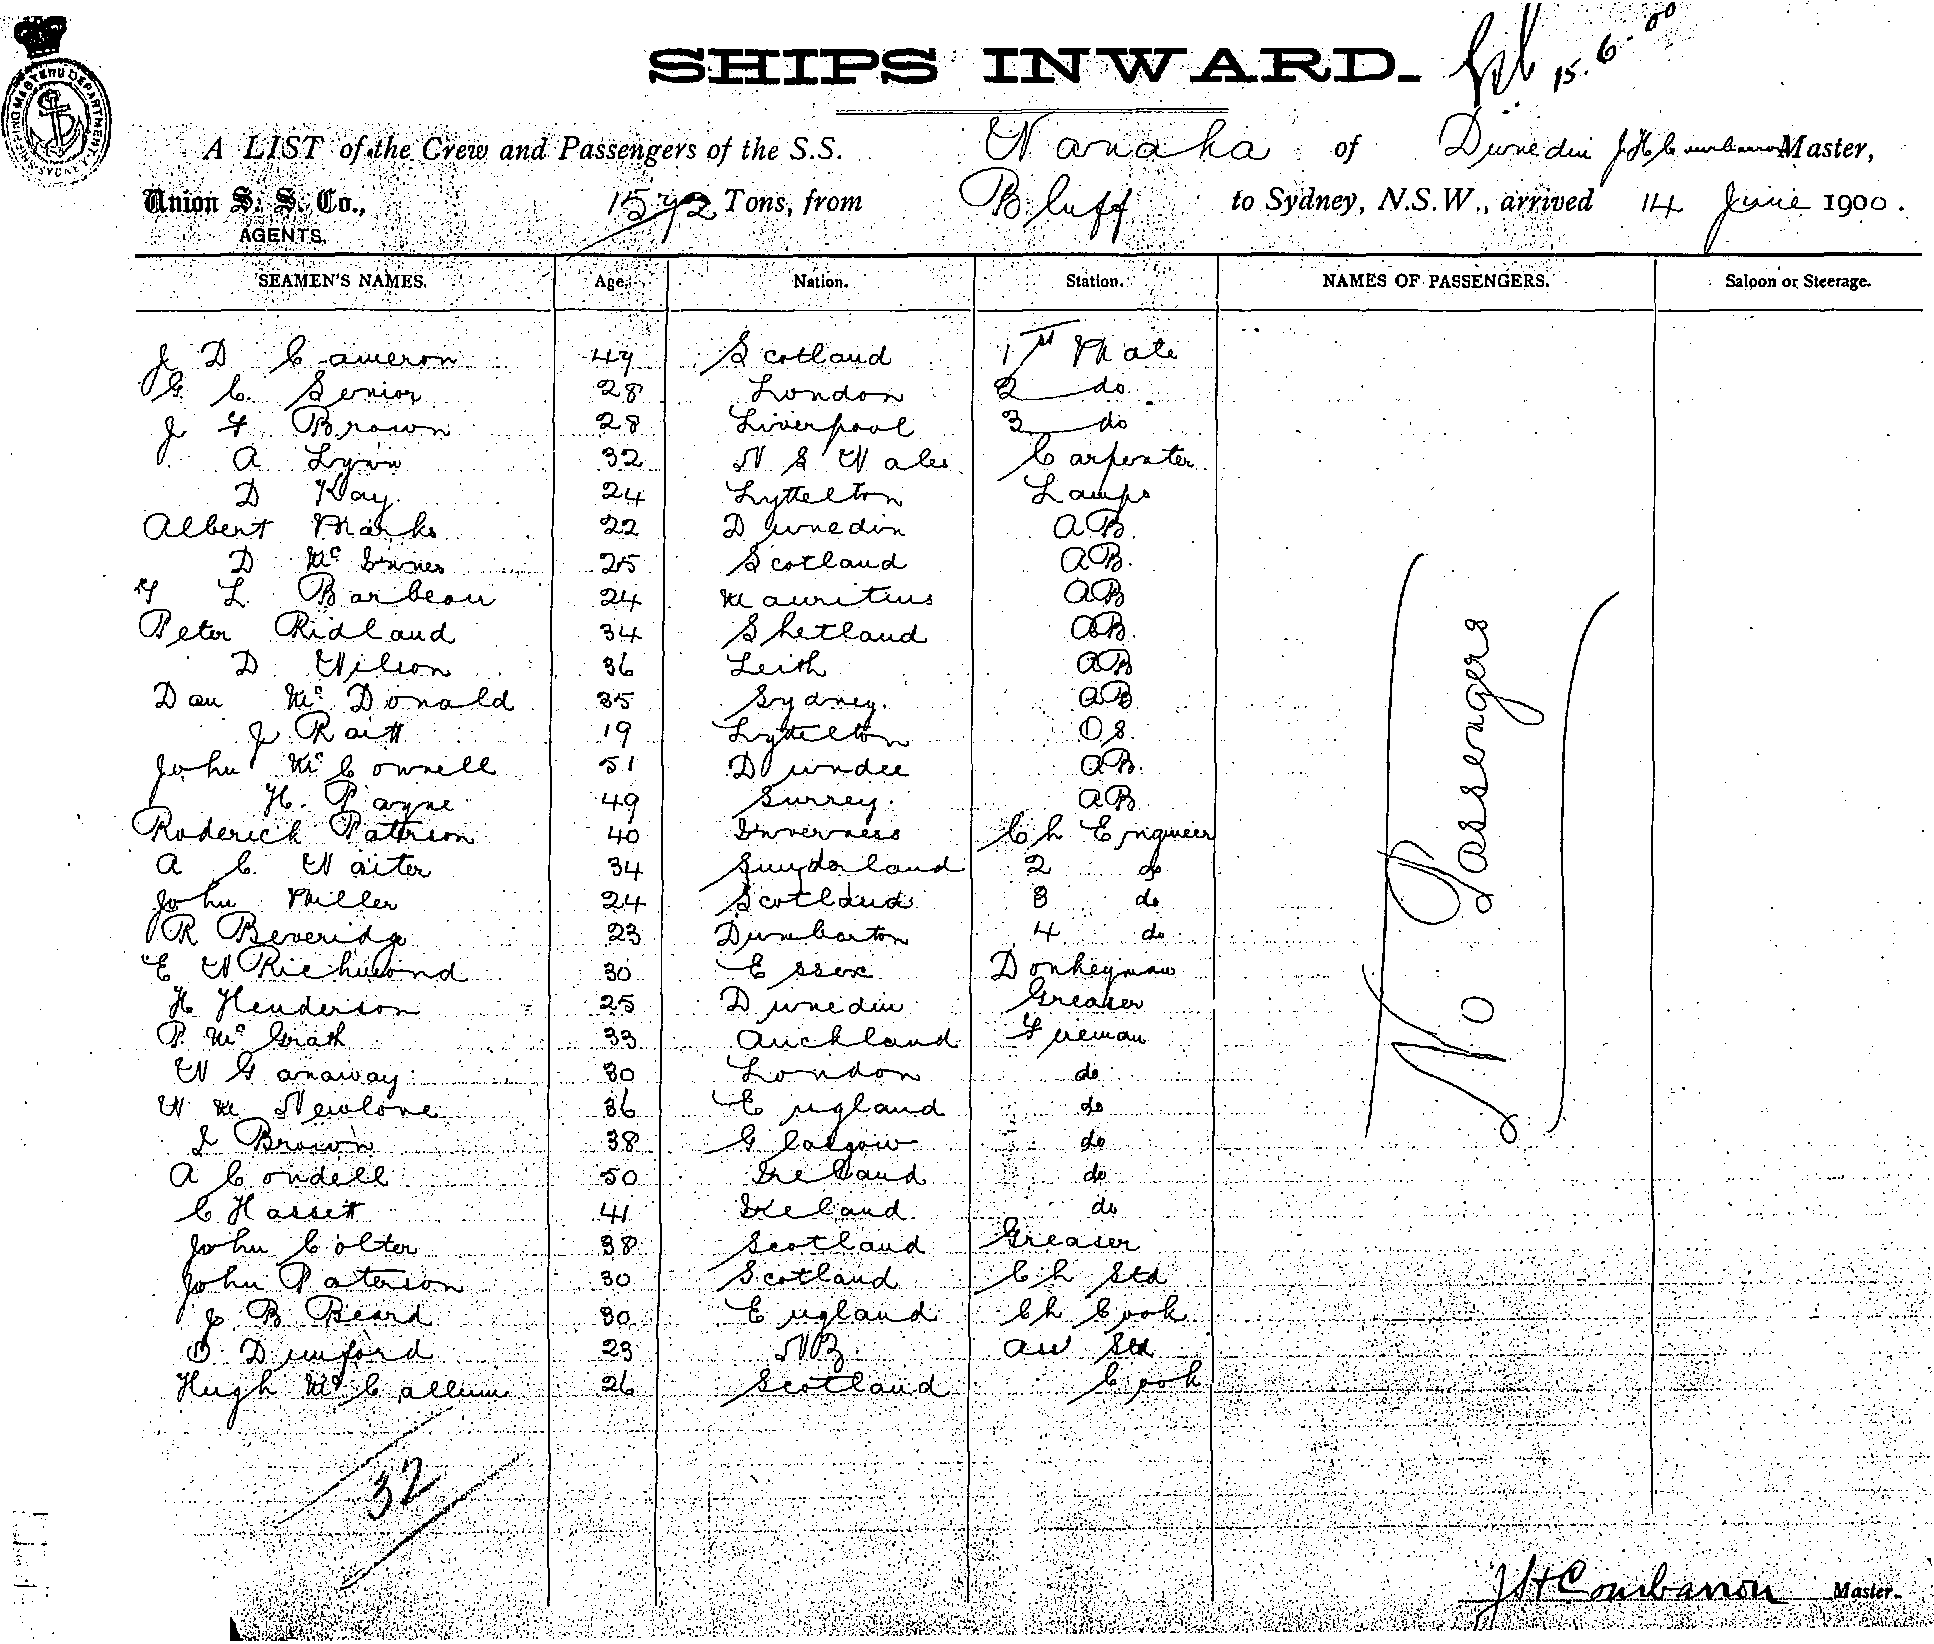 SHIPS INWARD.
15.6.00
SHIPPING MASTERS DEPARTMENT
SYDNEY
A LIST of the Crew and Passengers of the S.S. Wanaka of Dunedin J H Combanon Master,
Union S. S. Co., 1572 Tons, from Bluff to Sydney, N.S.W., arrived 14 June 1900.
AGENTS.
SEAMEN'S NAMES. Age. Nation. Station. NAMES OF PASSENGERS. Saloon or Steerage.
J D Cameron 49 Scotland 1st Mate
G. C. Senior 28 London 2 do
J F Brown 28 Liverpool 3 do
A Lynn 32 N S Wales Carpenter
D Kay. 24 Lyttelton Lamps
Albert Marks 22 Dunedin AB.
D McInnes 25 Scotland AB.
L Barbeau 24 Mauritius AB
Peter Ridland 34 Shetland AB.
D Wilson 36 Leith AB
Dan McDonald 35 Sydney. AB
J Raitt 19 Lyttelton OS.
John McConnell 51 Dundee AB.
H. Payne 49 Surrey. AB
Roderick Patterson 40 Inverness Ch Engineer
A C. Waiter 34 Sunderland 2 do
John Miller 24 Scotland 3 do
R Beveridge 23 Dumbarton 4 do
E W Richmond 30 Essex Donkeyman
H Henderson 25 Dunedin Greaser
P. McGrath 33 Auckland Fireman
W Ganaway 30 London do
W M Newlove 36 England do
J Brown 38 Glasgow do
A Condell 50 Ireland do
C Hassett 41 Ireland do
John Colter 38 Scotland Greaser
John Paterson 30 Scotland Ch Std
J B Beard 30 England Ch Cook
O Dunford 23 NZ. Std
Hugh McCallum 26 Scotland Cook
No Passengers
32
J H Combanon Master.